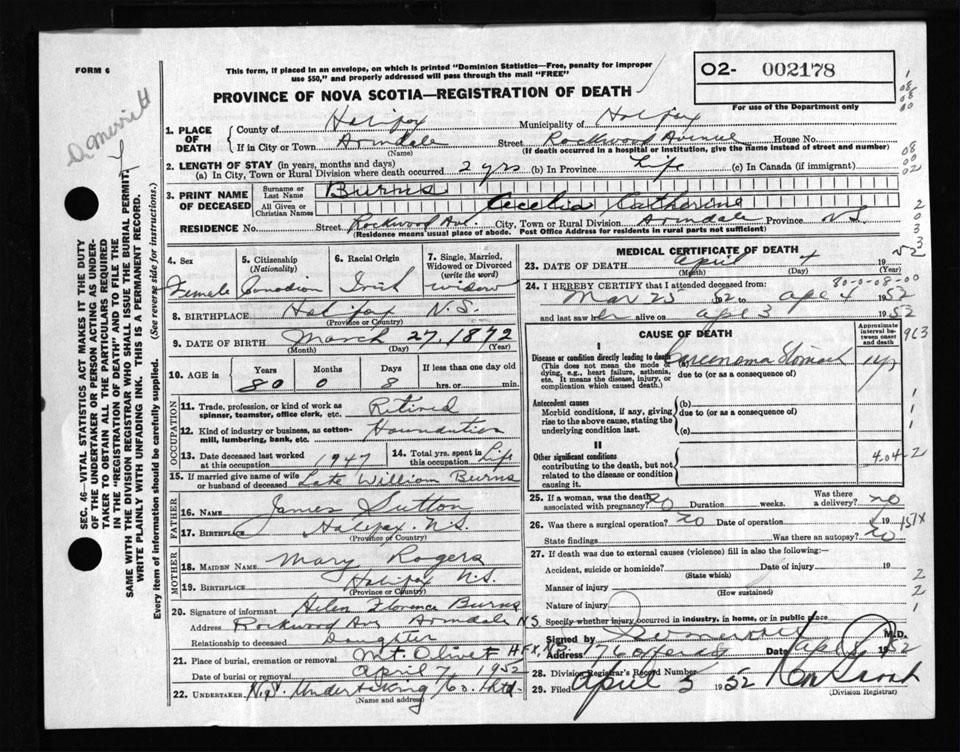 FORM 6
This form, if placed in an envelope, on which is printed "Dominion Statistics—Free, penalty for improper
use $50," and properly addressed will pass through the mail "FREE"
PROVINCE OF NOVA SCOTIA—REGISTRATION OF DEATH
02- 002178
For use of the Department only
D. A. Merritt
1. PLACE OF DEATH
County of Halifax Municipality of Halifax
If in City or Town Armdale Street Rockwood Avenue House No.
(Name) (If death occurred in a hospital or institution, give the name instead of street and number)
2. LENGTH OF STAY (in years, months and days)
(a) In City, Town or Rural Division where death occurred 2 yrs (b) In Province Life (c) In Canada (if immigrant)
3. PRINT NAME OF DECEASED
Surname or Last Name Burns
All Given or Christian Names Cecelia Catherine
RESIDENCE No. Street Rockwood Ave. City, Town or Rural Division Armdale Province N.S.
(Residence means usual place of abode. Post Office Address for residents in rural parts not sufficient)
4. Sex
Female
5. Citizenship
(Nationality)
Canadian
6. Racial Origin
Irish
7. Single, Married,
Widowed or Divorced
(write the word)
widow
8. BIRTHPLACE Halifax N.S.
(Province or Country)
9. DATE OF BIRTH March 27, 1872
(Month) (Day) (Year)
10. AGE
Years Months Days If less than one day old
80 0 8 hrs. or min.
OCCUPATION
11. Trade, profession, or kind of work as
spinner, teamster, office clerk, etc. Retired
12. Kind of industry or business, as cotton-
mill, lumbering, bank, etc.
13. Date deceased last worked
at this occupation 1947
14. Total yrs. spent in
this occupation Life
15. If married give name of wife
or husband of deceased Late William Burns
FATHER
16. NAME James Sutton
17. BIRTHPLACE Halifax. N.S.
(Province or Country)
MOTHER
18. MAIDEN NAME Mary Rogers
19. BIRTHPLACE Halifax N.S.
(Province or Country)
20. Signature of informant Helen Florence Burns
Address Rockwood Ave Armdale N.S.
Relationship to deceased Daughter
21. Place of burial, cremation or removal Mt. Olivet HFX, N.S.
Date of burial or removal April 7 1952
22. UNDERTAKER N.S. Undertaking Co. Ltd.
(Name and address)
MEDICAL CERTIFICATE OF DEATH
23. DATE OF DEATH April 4 1952
(Month) (Day) (Year)
80-0-08-00
24. I HEREBY CERTIFY that I attended deceased from:
Mar 23 1952 to Apr 4 1952
and last saw her alive on Apr 3 1952
CAUSE OF DEATH
Approximate
interval
between
onset and
death
I
Disease or condition directly leading to death
(This does not mean the mode
of dying, e.g., heart failure, asthenia,
etc. It means the disease, injury, or
complication which caused death.)
(a) Carcinoma Stomach 1 yr
due to (or as a consequence of)
Antecedent causes
Morbid conditions, if any, giving
rise to the above cause, stating the
underlying condition last.
(b)
due to (or as a consequence of)
(c)
II
Other significant conditions
contributing to the death, but not
related to the disease or condition
causing it.
25. If a woman, was the death
associated with pregnancy? no Duration weeks. Was there
a delivery? no
26. Was there a surgical operation? no Date of operation 19
State findings Was there an autopsy? no
151X
27. If death was due to external causes (violence) fill in also the following:—
Accident, suicide or homicide? Date of injury 19
(State which)
Manner of injury
(How sustained)
Nature of injury
Specify whether injury occurred in industry, in home, or in public place
Signed by M.D.
Address Date Apr 1952
28. Division Registrar's Record Number
29. Filed April 5 1952
(Division Registrar)
SEC. 46—VITAL STATISTICS ACT MAKES IT THE DUTY
OF THE UNDERTAKER OR PERSON ACTING AS UNDER-
TAKER TO OBTAIN ALL THE PARTICULARS REQUIRED
IN THE "REGISTRATION OF DEATH" AND TO FILE THE
SAME WITH THE DIVISION REGISTRAR WHO SHALL ISSUE THE BURIAL PERMIT.
WRITE PLAINLY WITH UNFADING INK. THIS IS A PERMANENT RECORD.
Every item of information should be carefully supplied. (See reverse side for instructions.)